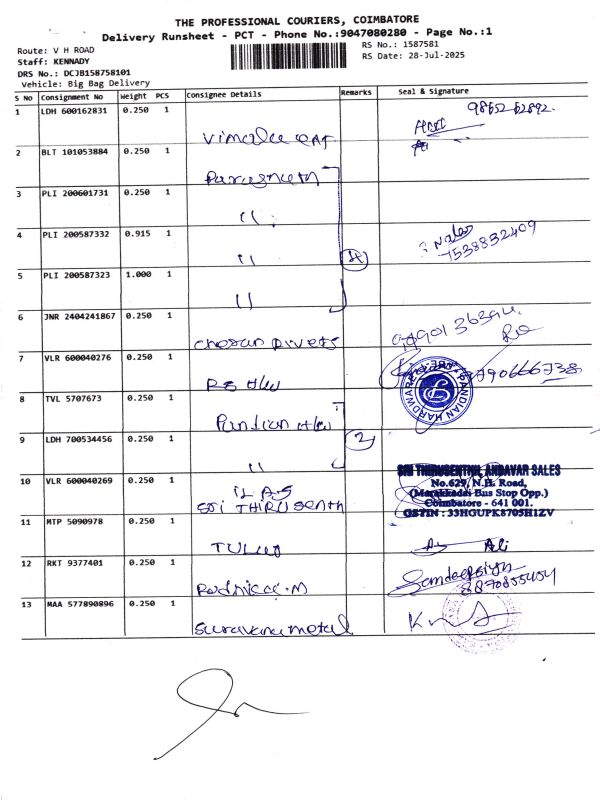 THE PROFESSIONAL COURIERS, COIMBATORE
Delivery Runsheet - PCT - Phone No.:9047080280 - Page No.:1
Route: V H ROAD
RS No.: 1587581
Staff: KENNADY
RS Date: 28-Jul-2025
DRS No.: DCJB158758101
Vehicle: Big Bag Delivery
S No Consignment No Weight PCS Consignee Details Remarks Seal & Signature
1 LDH 600162831 0.250 1
2 BLT 101053884 0.250 1
3 PLI 200601731 0.250 1
11
4 PLI 200587332 0.915 1
7538832409
11
4
5 PLI 200587323 1.000 1
11
6 JNR 2404241867 0.250 1
7 VLR 600040276 0.250 1
RS H/w
PANDIAN HARDWARE
8 TVL 5707673 0.250 1
Pandian H/w
2
9 LDH 700534456 0.250 1
11
SRI THIRUSENTHIL ANDAVAR SALES
No.629, N.H. Road,
(Marakkadai Bus Stop Opp.)
Coimbatore - 641 001.
GSTIN : 33HGUPK8705H1ZV
10 VLR 600040269 0.250 1
SRI THIRUSENTH
11 MTP 5090978 0.250 1
Ali
12 RKT 9377401 0.250 1
8870855454
13 MAA 577890896 0.250 1
Saravana metal